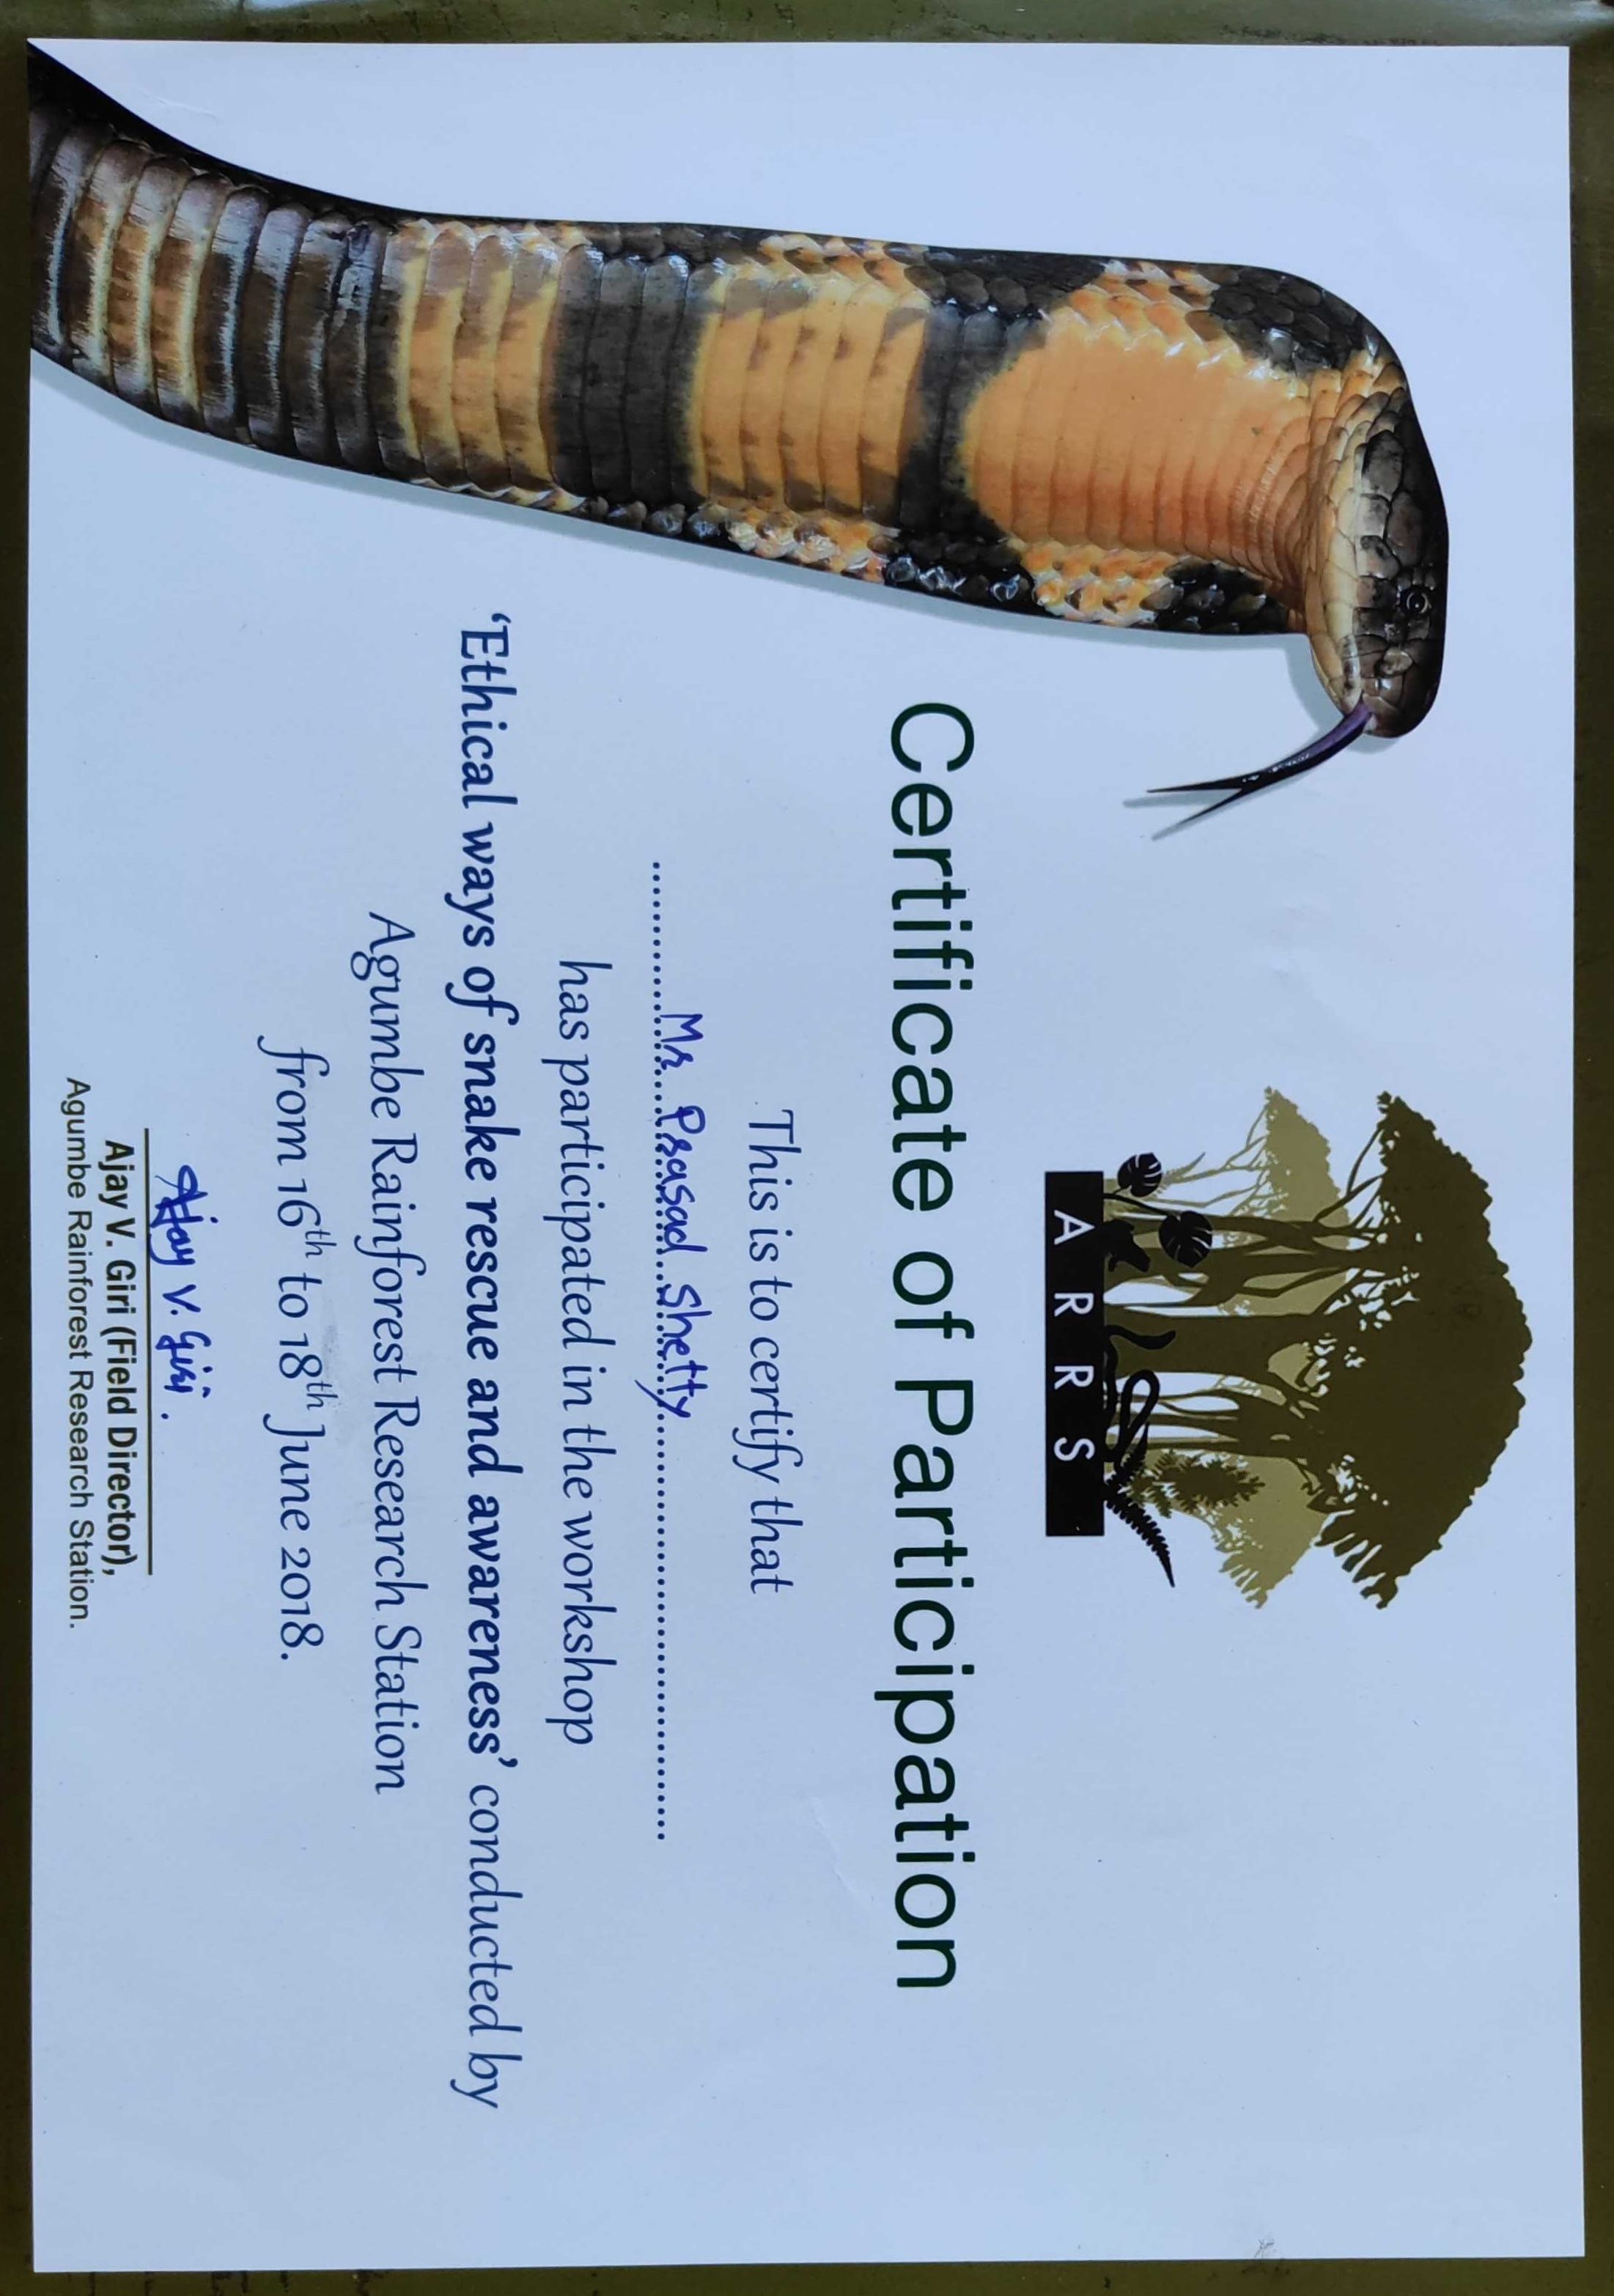 A R R S
Certificate of Participation
This is to certify that
Mr Prasad Shetty
has participated in the workshop
‘Ethical ways of snake rescue and awareness’ conducted by
Agumbe Rainforest Research Station
from 16th to 18th June 2018.
Ajay V. Giri.
Ajay V. Giri (Field Director),
Agumbe Rainforest Research Station.